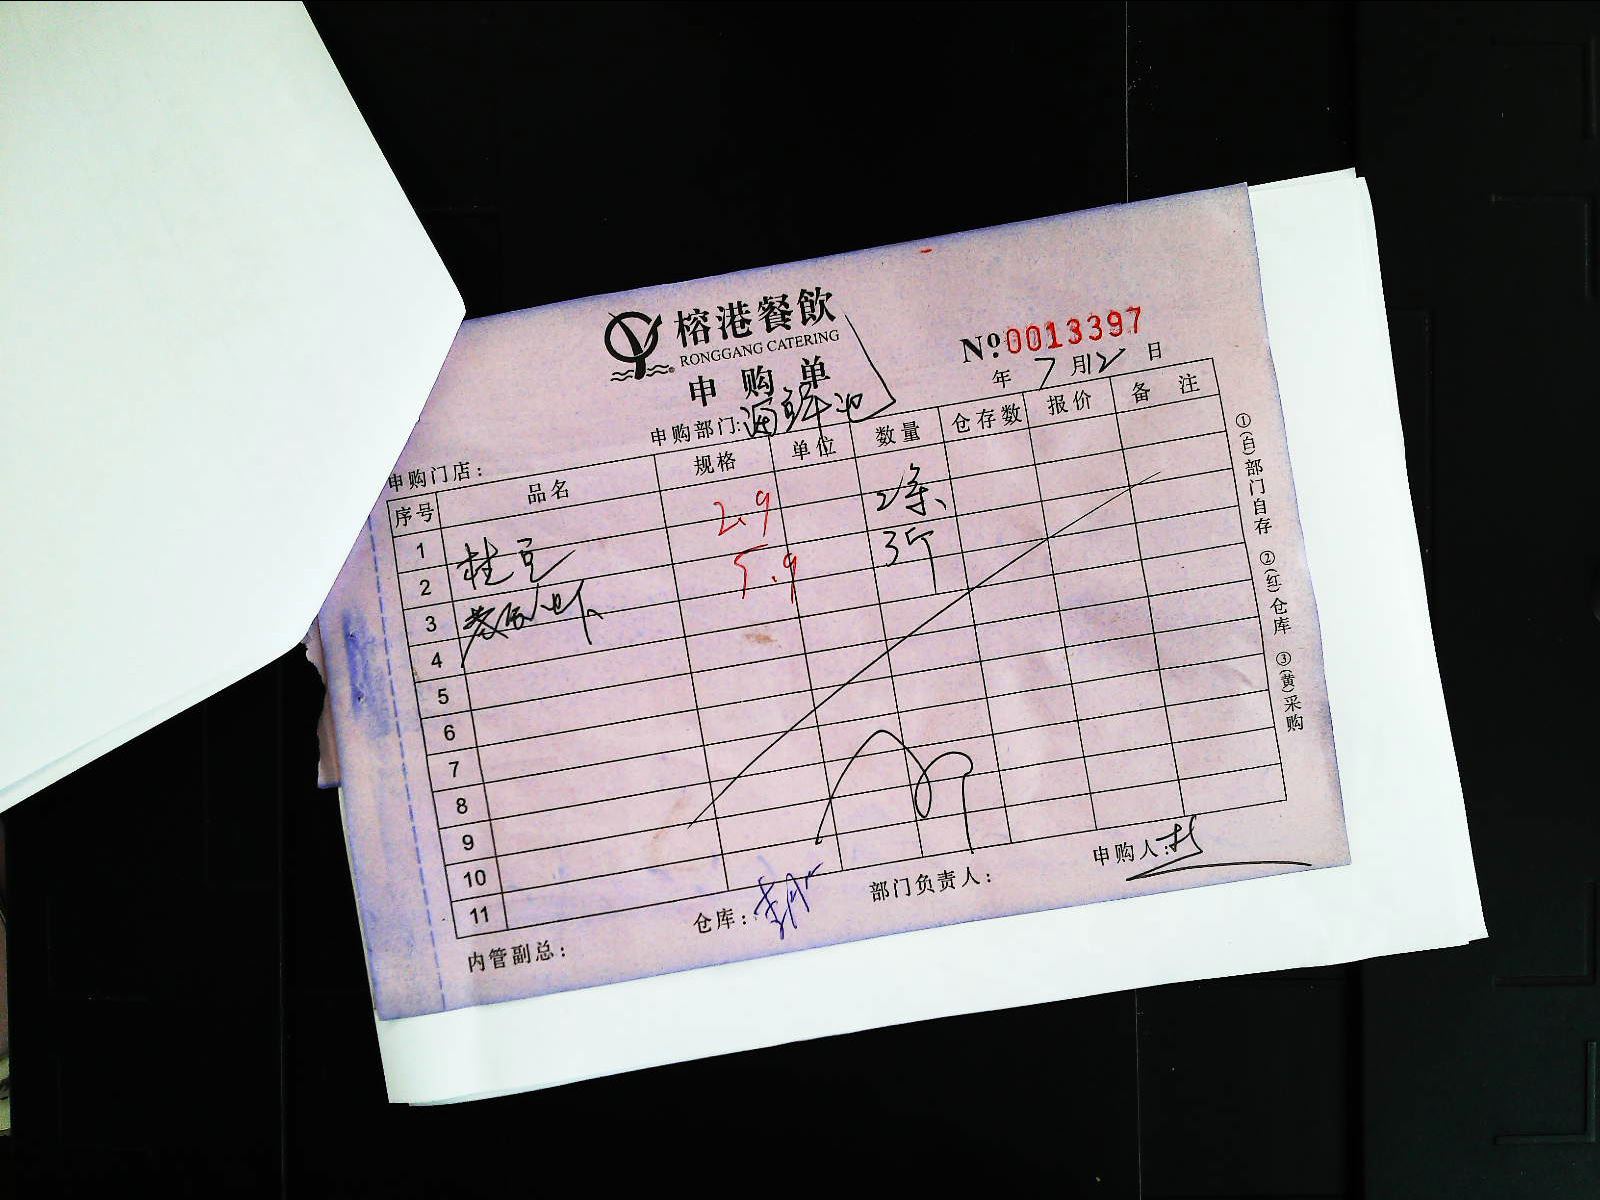 榕港餐飲
RONGGANG CATERING
申购单
№0013397
年 7月12日
申购门店：
申购部门:海鲜池
序号 品名 规格 单位 数量 仓存数 报价 备注
1 2.9 2条
2 桂 5.9 3斤
3 虾
4
5
6
7
8
9
10
11
内管副总：
仓库：
部门负责人：
申购人：
①(白)部门自存 ②(红)仓库 ③(黄)采购